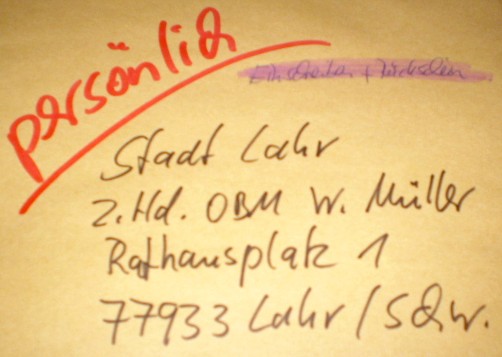 persönlich
Einschreiben + Rückschein
Stadt Lahr
z.Hd. OBM W. Müller
Rathausplatz 1
77933 Lahr / Schw.